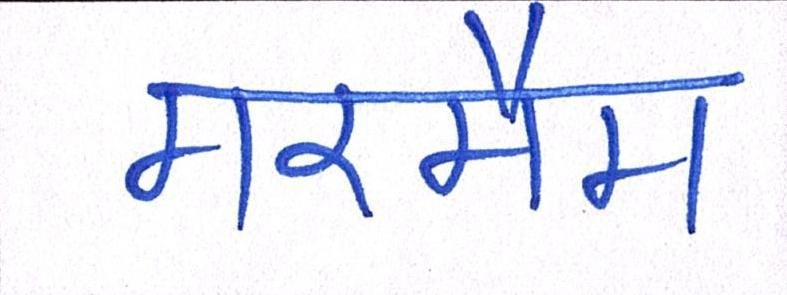 मरमैम